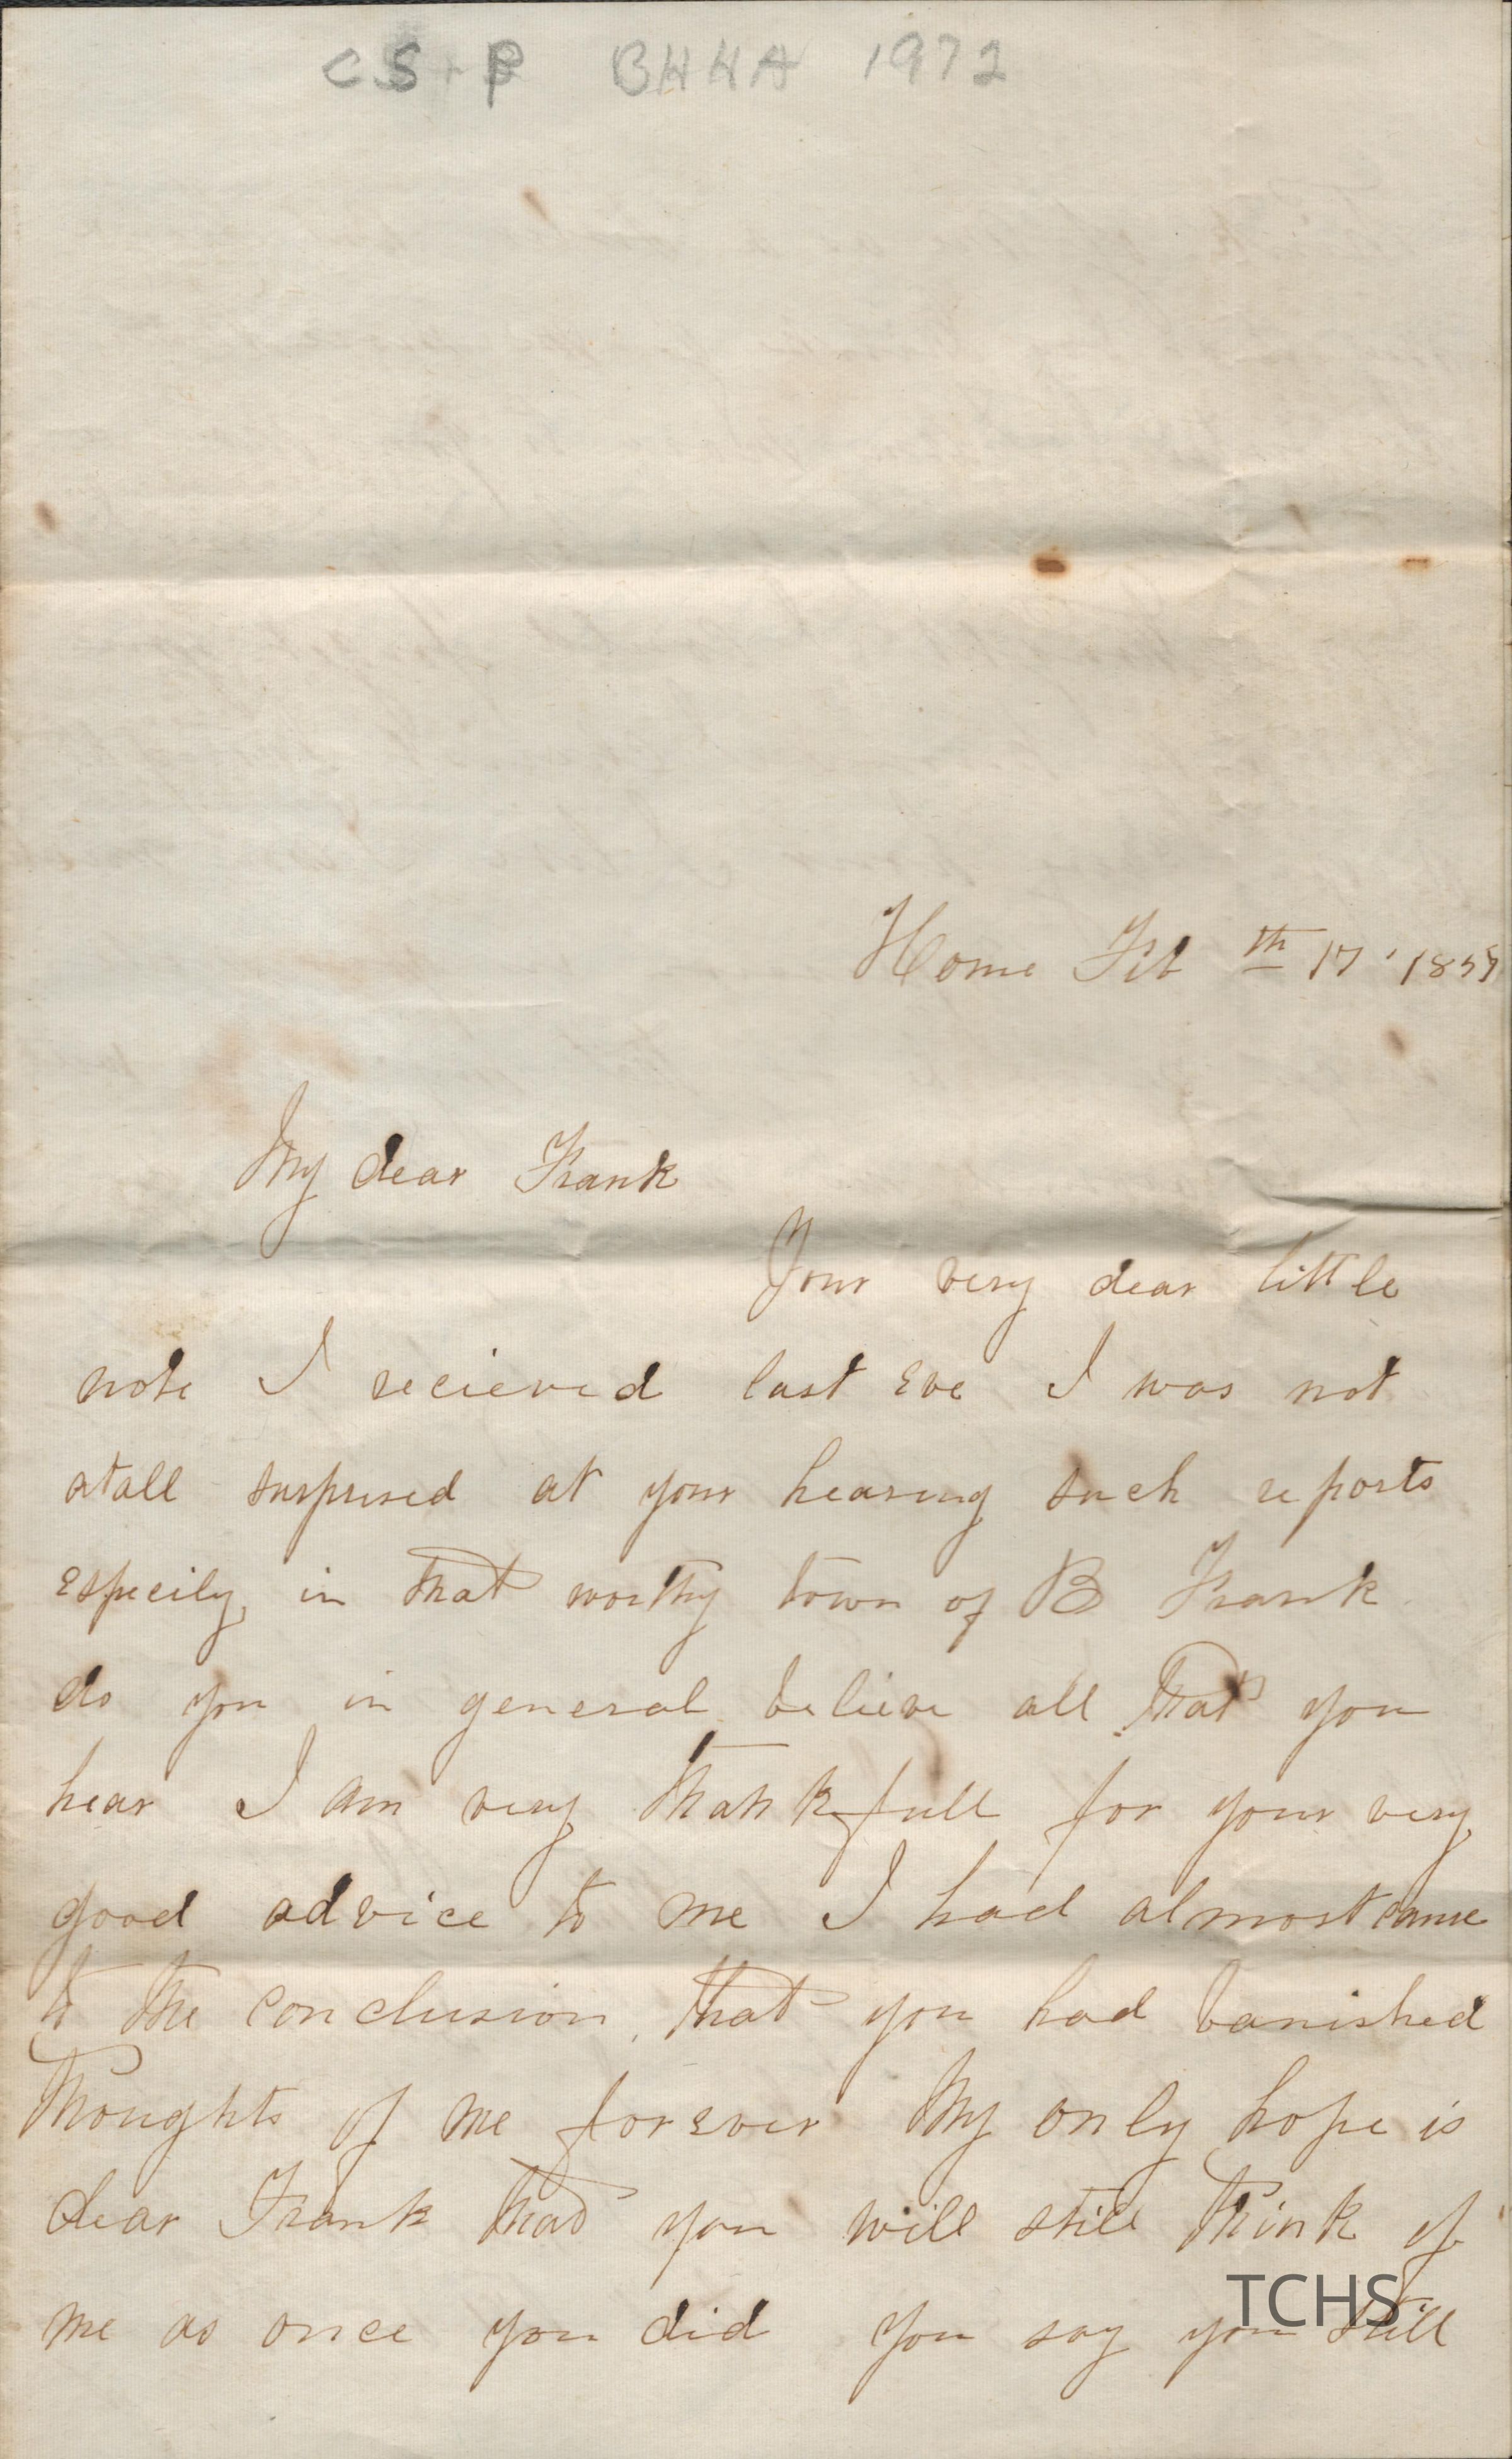 CS+P BHHA 1972
Home Feb th 17 '185
My dear Frank
Your very dear little
note I recieved last Eve I was not
atall surprised at your hearing such reports
especily in that worthy town of B Frank
do you in general believe all that you
hear I am very thankfull for your very
good advice to me I had almost came
to the conclusion that you had banished
thoughts of me forever My only hope is
dear Frank that you will still think of
me as once you did you say you still
TCHS